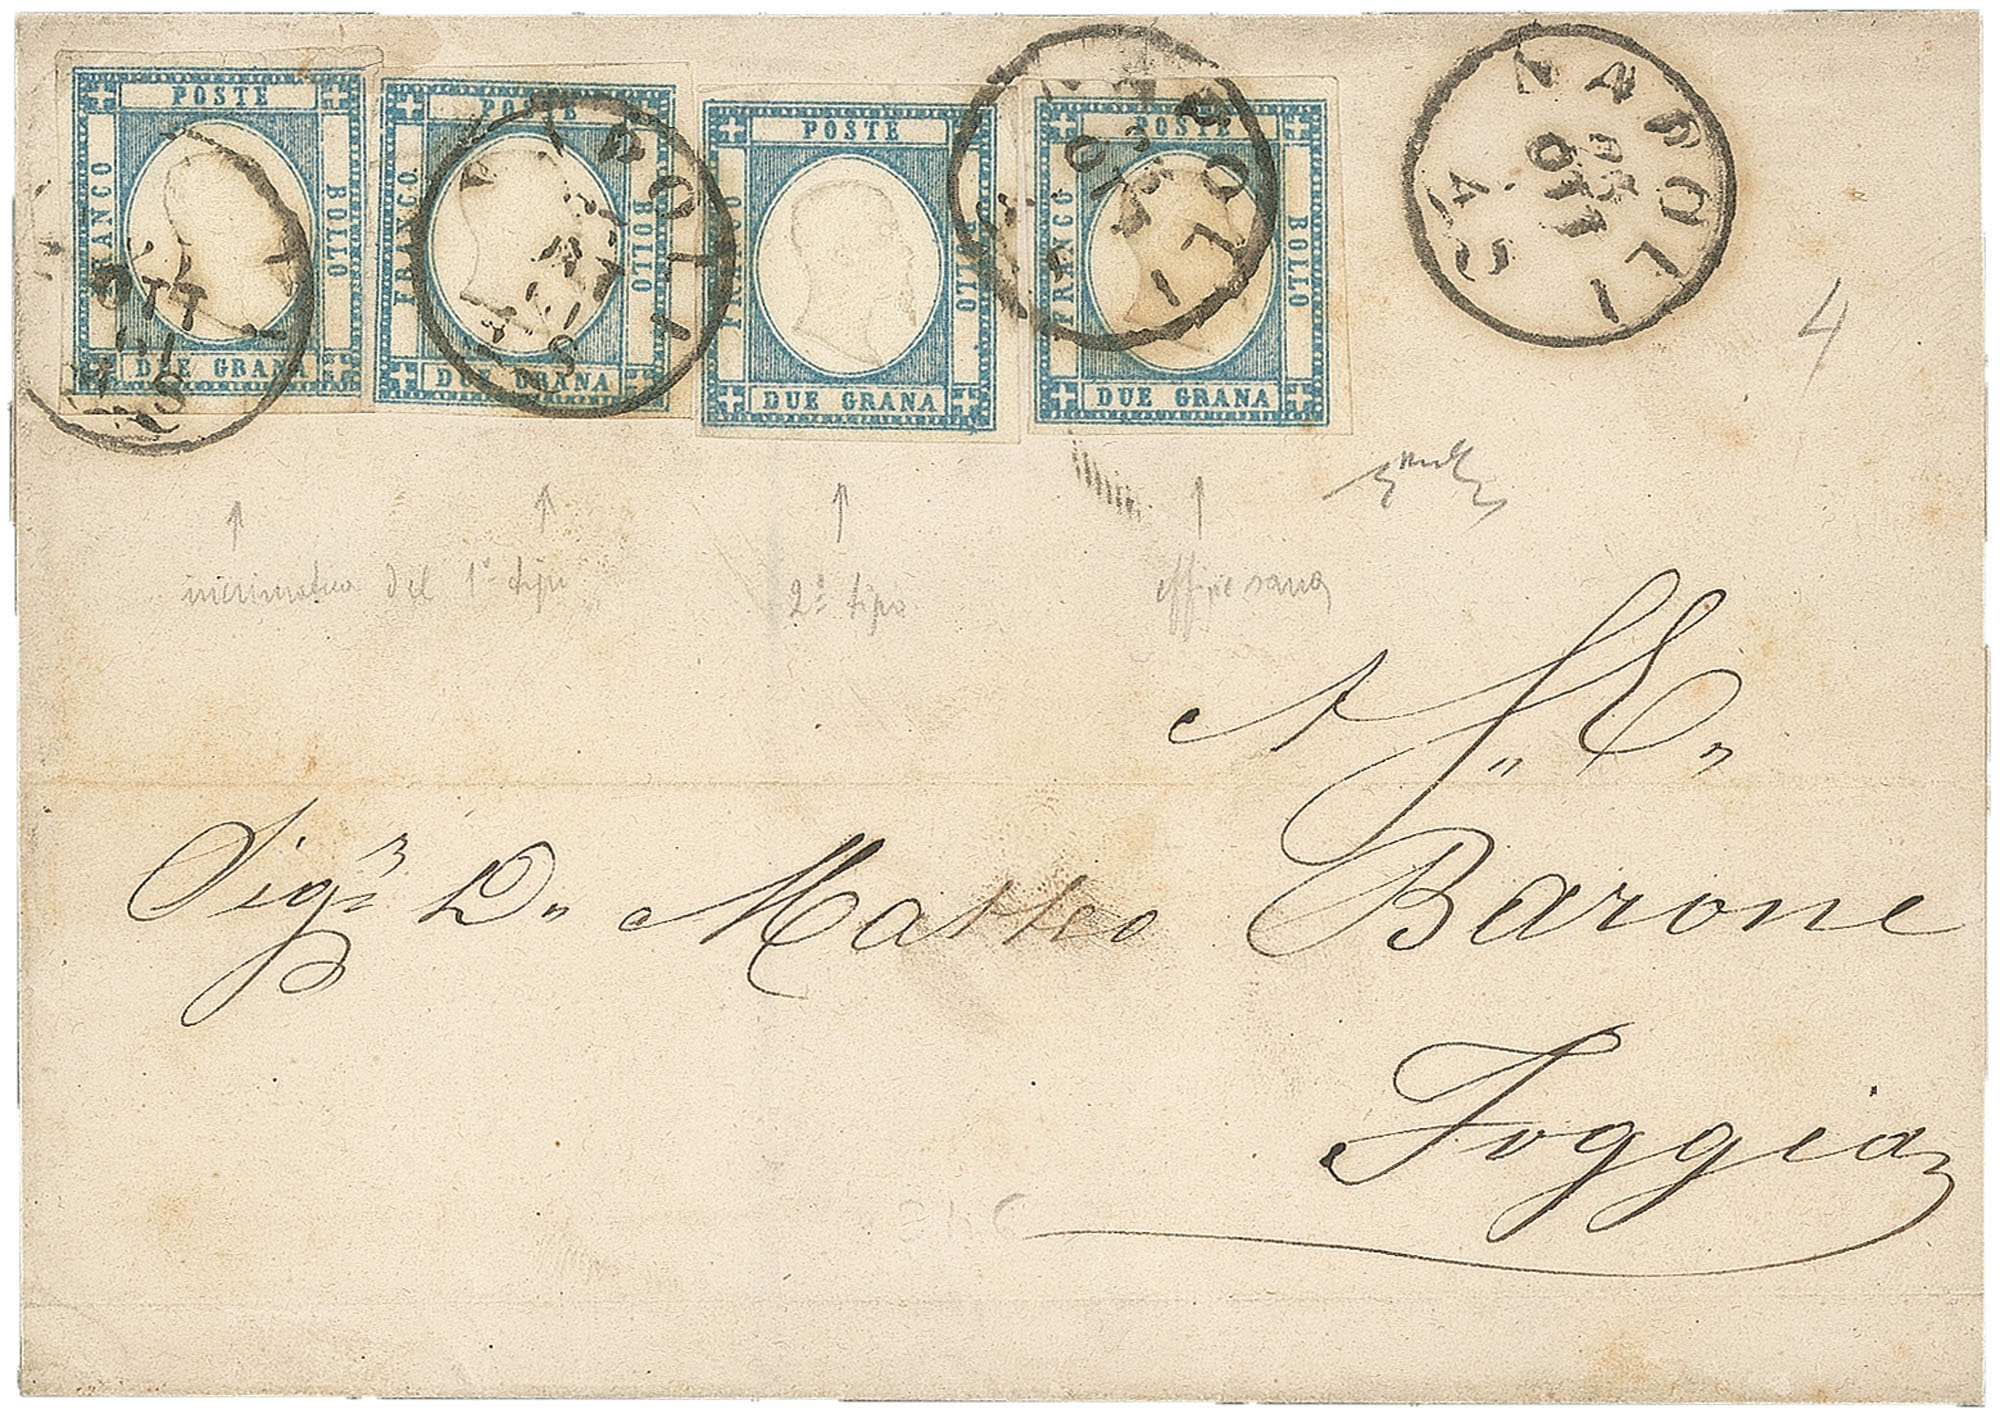 POSTE
FRANCO
BOLLO
DUE GRANA
POSTE
FRANCO
BOLLO
DUE GRANA
POSTE
FRANCO
BOLLO
DUE GRANA
POSTE
FRANCO
BOLLO
DUE GRANA
NAPOLI
OTT
NAPOLI
NAPOLI
OTT
NAPOLI
OTT
4
del 1º tipo
2º tipo
effigie
A S. E.
Sigr. D. Matteo Barone
Foggia